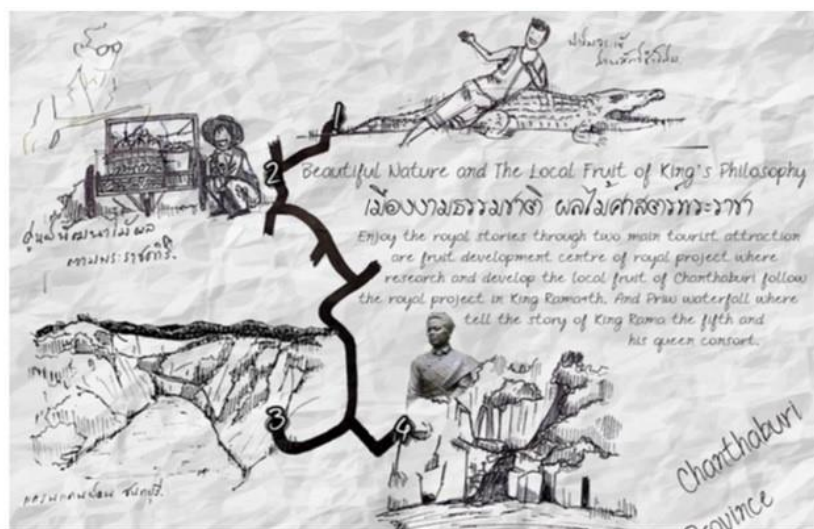 1
ฟาร์มจระเข้
2
Beautiful Nature and The Local Fruit of King's Philosophy
เมืองงามธรรมชาติ ผลไม้ศาสตร์พระราชา
Enjoy the royal stories through two main tourist attraction
are fruit development centre of royal project where
research and develop the local fruit of Chanthaburi follow
the royal project in King Rama9th. And Priw waterfall where
tell the story of King Rama the fifth and
his queen consort.
ศูนย์พัฒนาไม้ผล
ตามพระราชดำริ.
3
4
ชลบุรี.
Chanthaburi
Province